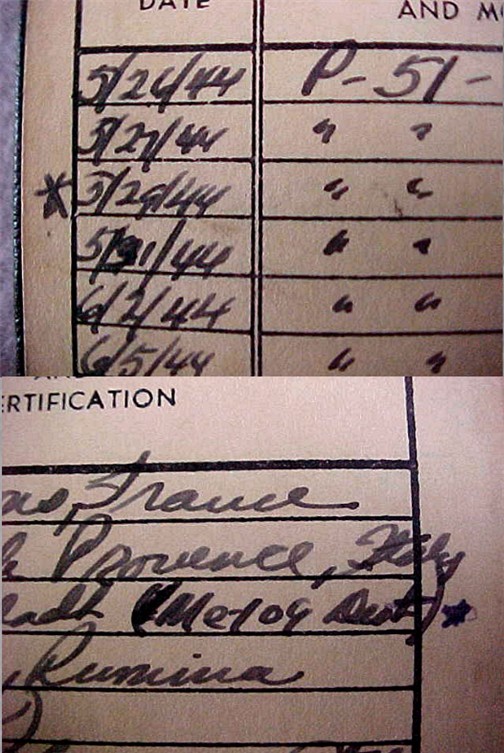 DATE
AND MO
5/26/44 P-51-
5/27/44 " "
* 5/29/44 " "
5/31/44 " "
6/2/44 " "
6/5/44 " "
ERTIFICATION
France
Provence, Italy
(Me-109 Dest) *
Rumina